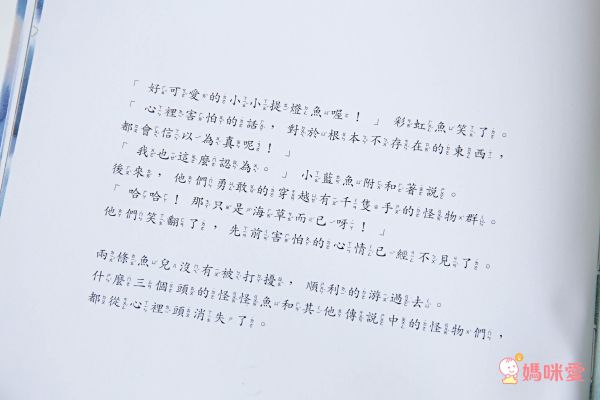 「好可愛的小小提燈魚喔！」彩虹魚笑了。
「心裡害怕的話，對於根本不存在的東西，
都會信以為真呢！」
「我也這麼認為。」小藍魚附和著說。
後來，他們勇敢的穿越有千隻手的怪物群。
「哈哈！那只是海草而已呀！」
他們笑翻了，先前害怕的心情已經不見了。
兩條魚兒沒有被打擾，順利的游過去。
什麼三個頭的怪怪魚和其他傳說中的怪物們，
都從心裡頭消失了。
媽咪愛